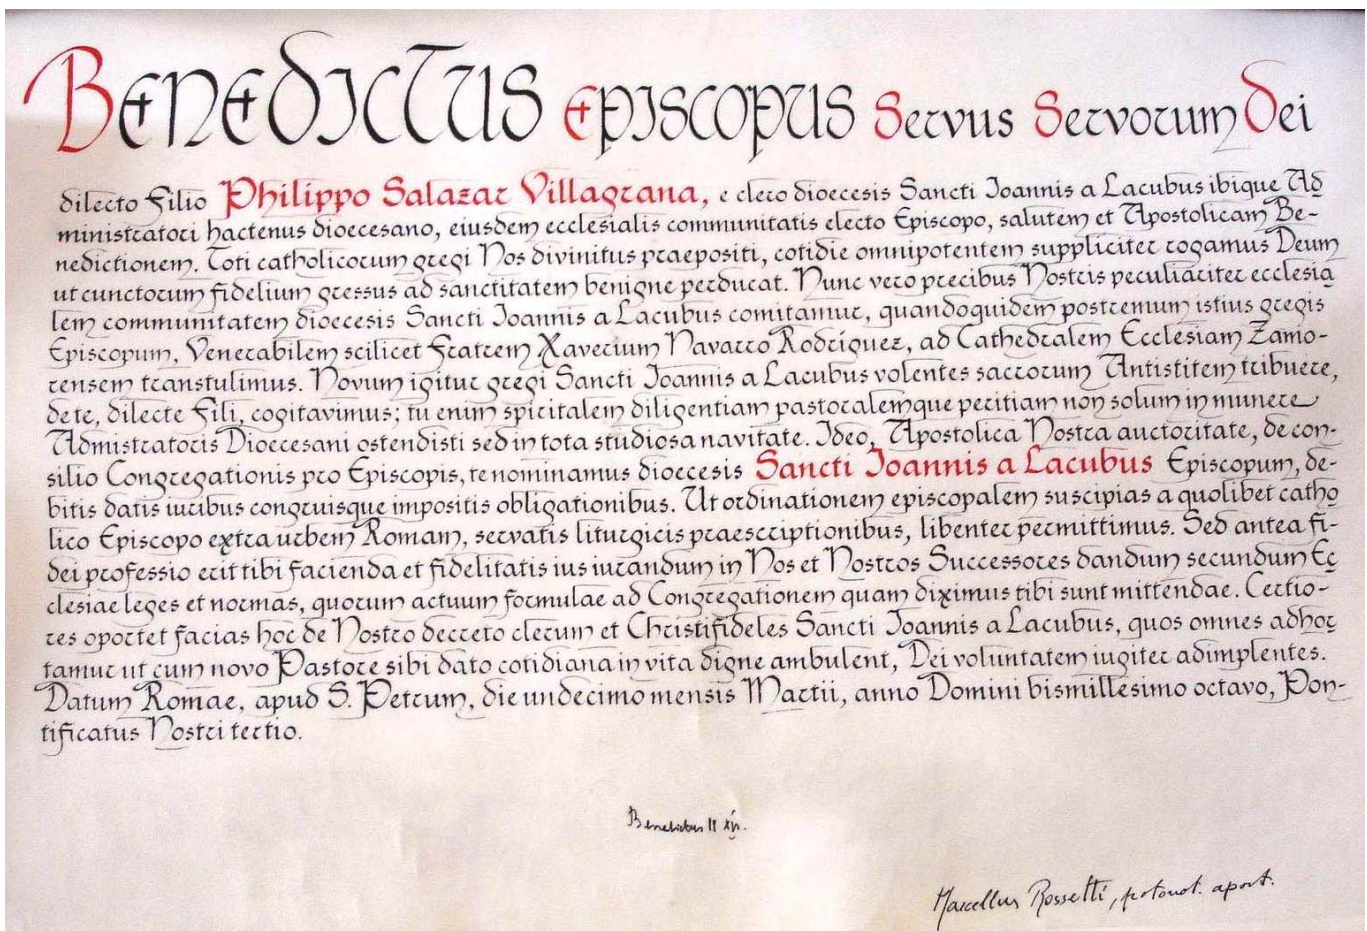 BENEDICTUS EPISCOPUS Servus Servorum Dei
dilecto Filio Philippo Salazar Villagrana, e clero dioecesis Sancti Joannis a Lacubus ibique Ad
ministratori hactenus dioecesano, eiusdem ecclesialis communitatis electo Episcopo, salutem et Apostolicam Be-
nedictionem. Toti catholicorum gregi Nos divinitus praepositi, cotidie omnipotentem suppliciter rogamus Deum
ut cunctorum fidelium gressus ad sanctitatem benigne perducat. Nunc vero precibus Nostris peculiariter ecclesia
lem communitatem dioecesis Sancti Joannis a Lacubus comitamur, quandoquidem postremum istius gregis
Episcopum, Venerabilem scilicet Fratrem Xaverium Navarro Rodríguez, ad Cathedralem Ecclesiam Zamo-
rensem transtulimus. Novum igitur gregi Sancti Joannis a Lacubus volentes sacrorum Antistitem tribuere,
de te, dilecte Fili, cogitavimus; tu enim spiritalem diligentiam pastoralemque peritiam non solum in munere
Admistratoris Dioecesani ostendisti sed in tota studiosa navitate. Ideo, Apostolica Nostra auctoritate, de con-
silio Congregationis pro Episcopis, te nominamus dioecesis Sancti Joannis a Lacubus Episcopum, de-
bitis datis iuribus congruisque impositis obligationibus. Ut ordinationem episcopalem suscipias a quolibet catho
lico Episcopo extra urbem Romam, servatis liturgicis praescriptionibus, libenter permittimus. Sed antea fi-
dei professio erit tibi facienda et fidelitatis ius iurandum in Nos et Nostros Successores dandum secundum Ec
clesiae leges et normas, quorum actuum formulae ad Congregationem quam diximus tibi sunt mittendae. Certio-
res oportet facias hoc de Nostro decreto clerum et Christifideles Sancti Joannis a Lacubus, quos omnes adhor
tamur ut cum novo Pastore sibi dato cotidiana in vita digne ambulent, Dei voluntatem iugiter adimplentes.
Datum Romae, apud S. Petrum, die undecimo mensis Martii, anno Domini bismillesimo octavo, Pon-
tificatus Nostri tertio.
Benedictus PP XVI.
Marcellus Rossetti, protonot. apost.